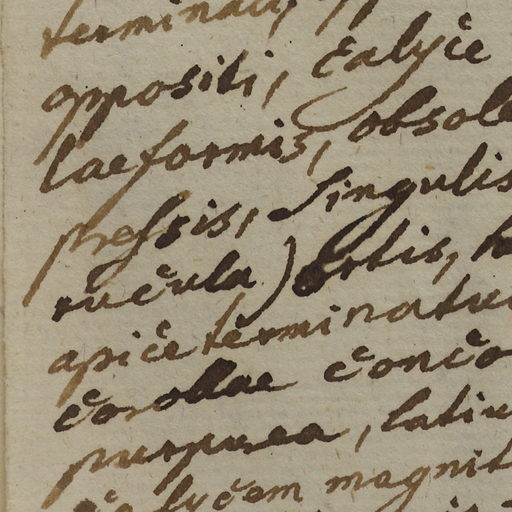 terminati,
oppositi, calyce
laeformis, obsole
pressis, singulis
rucula) ortis,
apice terminatu
corollae conco
purpurea, latiu
calycem magnit